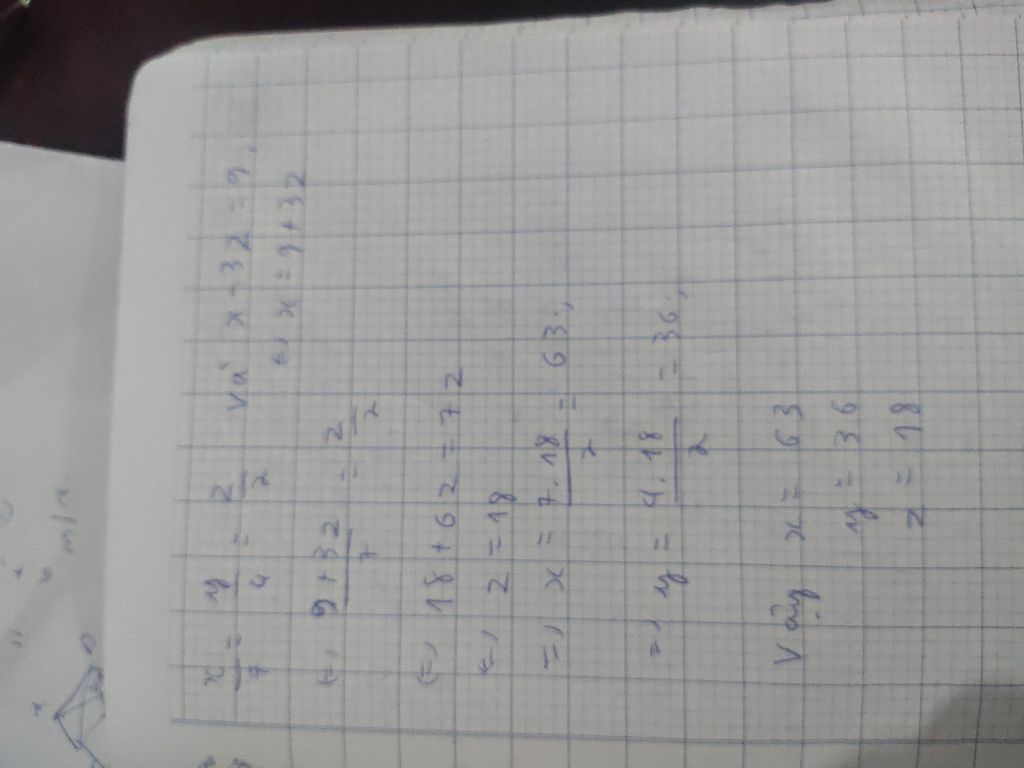 x/7 = y/4 = z/2 và x - 3z = 9,
(=) x = 9 + 3z
(=) 9 + 3z/7 = z/2
(=) 18 + 6z = 7z
(=) z = 18
=) x = 7.18/2 = 63,
=) y = 4.18/2 = 36,
Vậy x = 63
y = 36
z = 18